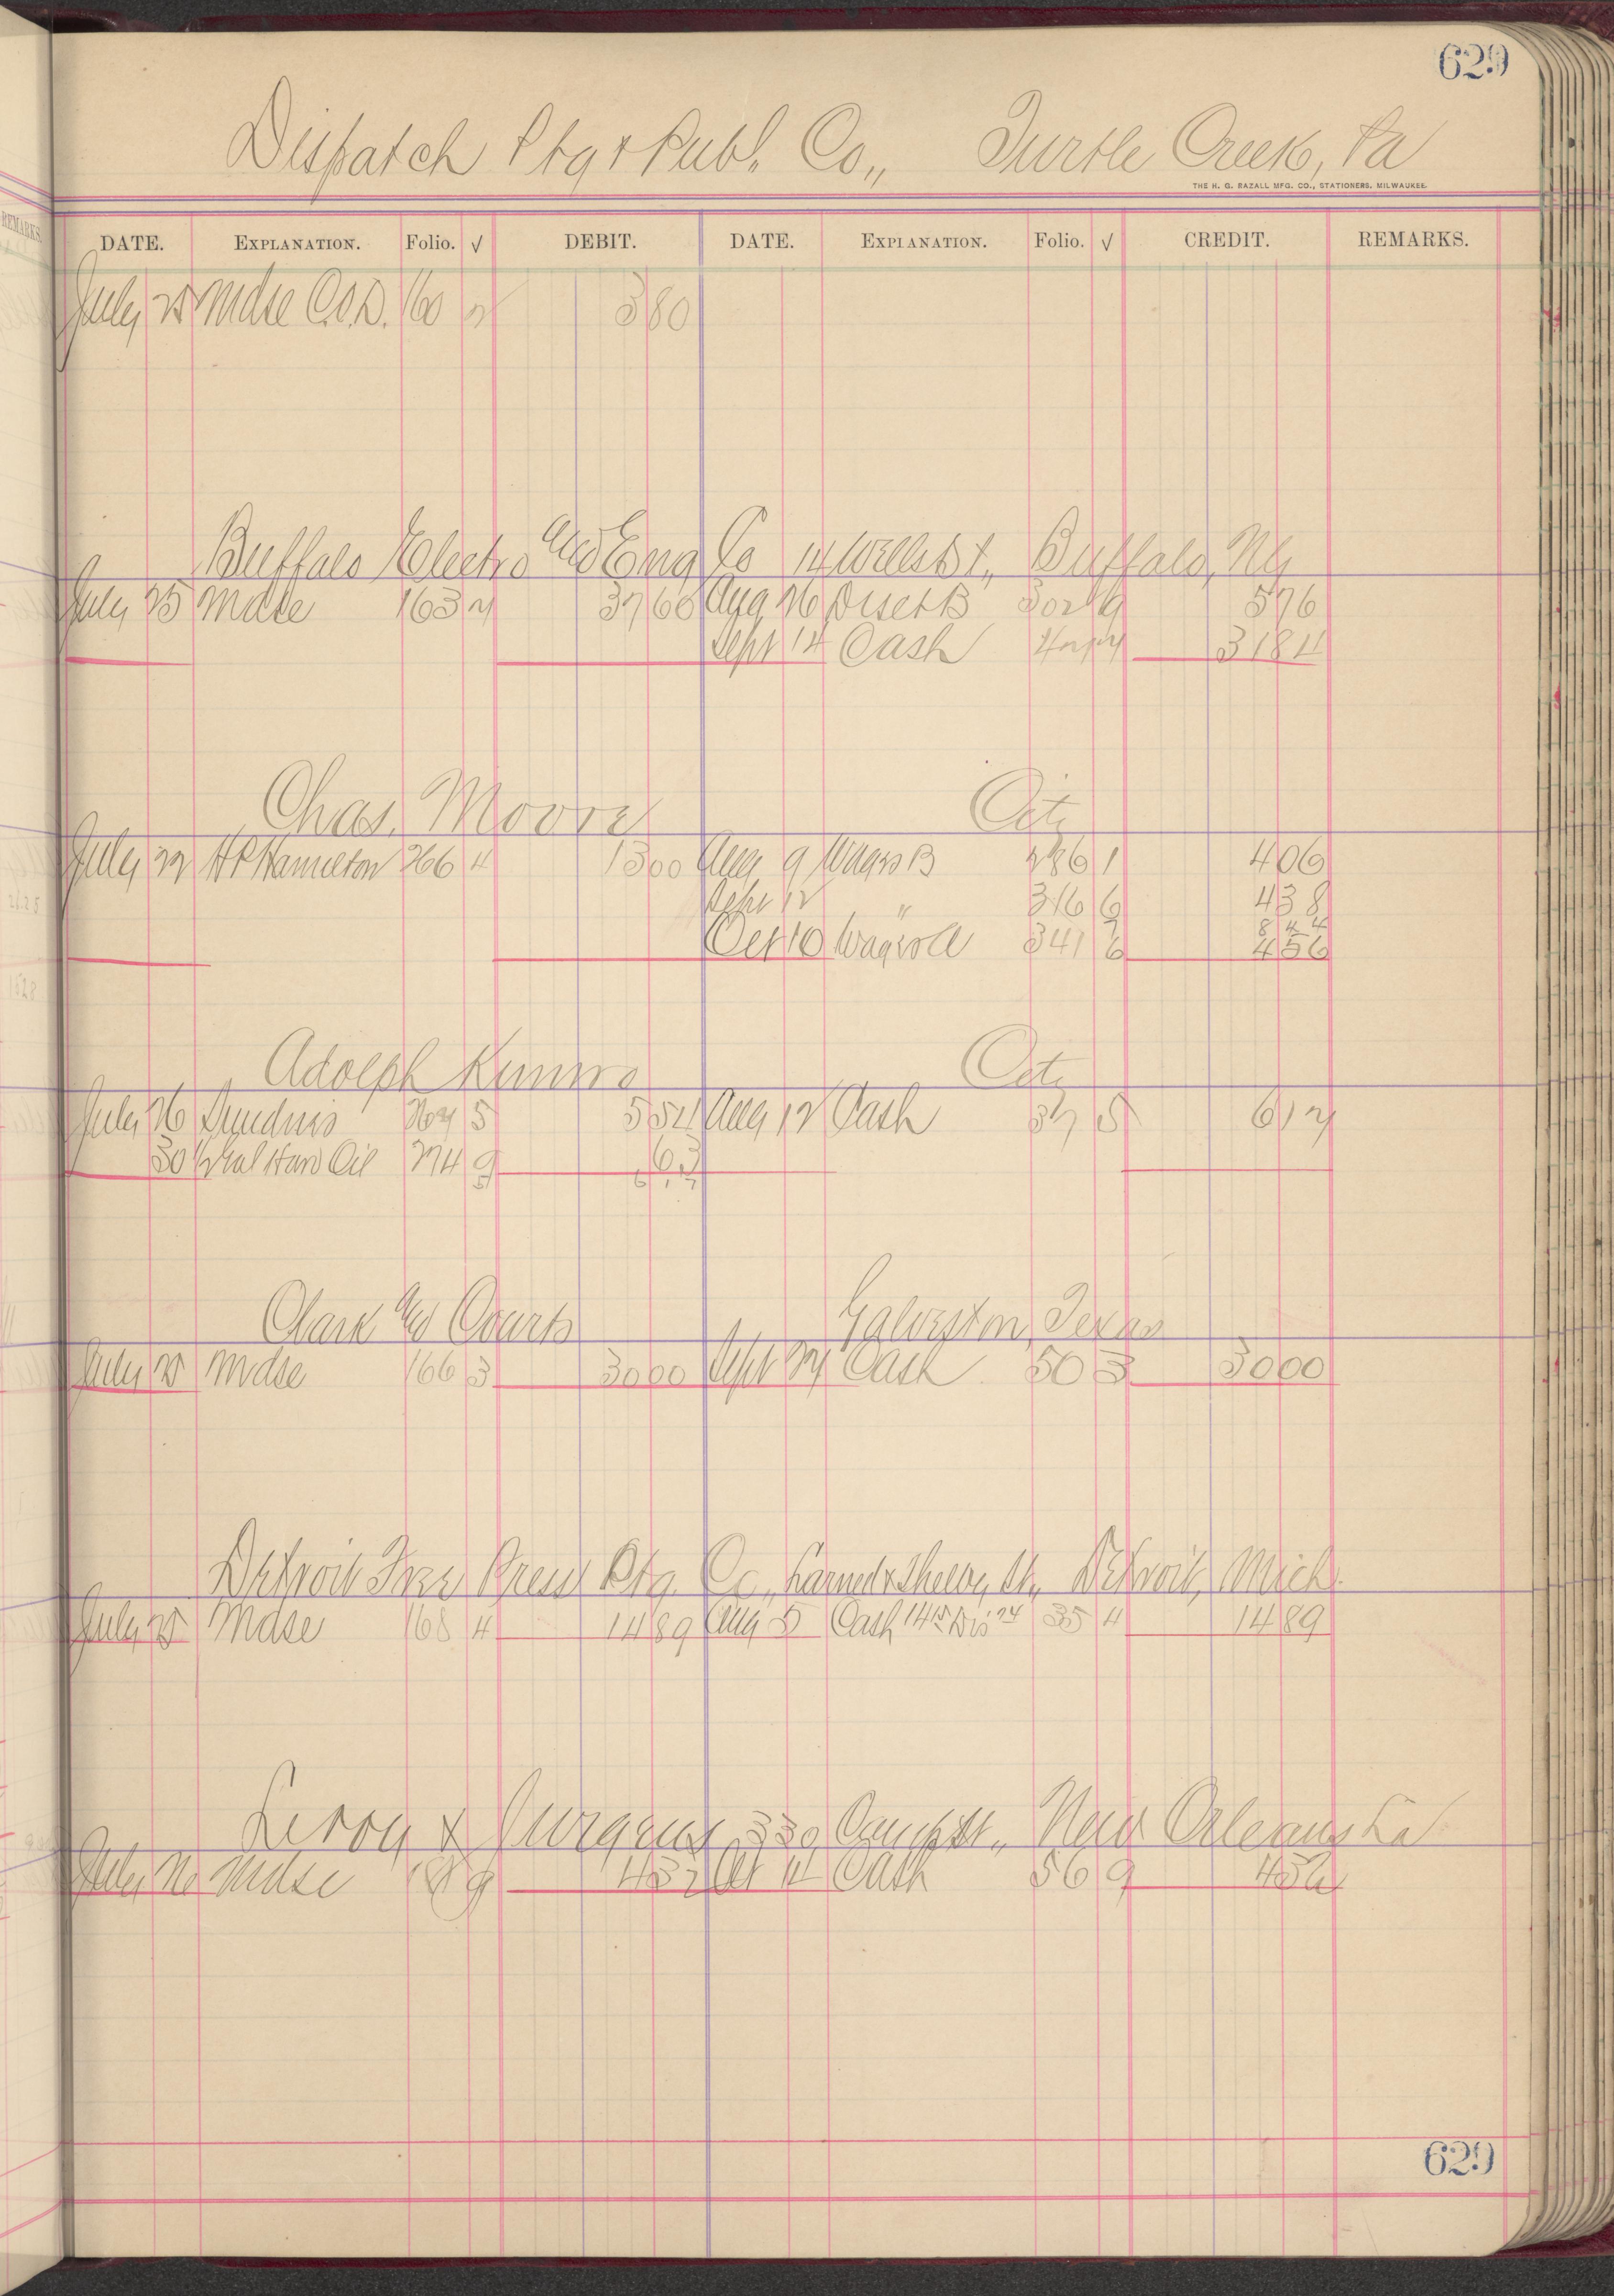 629
Dispatch Ptg & Publ. Co., Turtle Creek, Pa
THE H. G. RAZALL MFG. CO., STATIONERS, MILWAUKEE.
REMARKS.
DATE. EXPLANATION. Folio. √ DEBIT. DATE. EXPLANATION. Folio. √ CREDIT. REMARKS.
July 25 Mdse C.O.D. 160 2 380
Buffalo Electro and Eng Co 14 Wells St., Buffalo, Ny
July 25 Mdse 163 3760 Aug 26 302 9 576
Sept 14 Cash 3184
Chas. Moore City
July 22 H P Hamilton 266 4 1300 Aug 9 Wages B 286 1 406
Sept 12 " 316 6 438
844
Oct 10 Wages A 341 6 456
Adolph City
July 26 Sundries 5 554 Aug 12 Cash 37 5 617
30 Hard Oil 274 9 63
617
Clark and Courts Galveston, Texas
July 25 Mdse 166 3 3000 Sept 24 Cash 50 3 3000
Detroit Free Press Ptg. Co., Larned & Shelby St., Detroit, Mich.
July 25 Mdse 168 4 1489 Aug 5 Cash 1415 Dis 74 35 4 1489
Leroy & Jurgens, 330 Camp St., New Orleans La
July 26 Mdse 9 452 Oct 14 Cash 56 9 452
629